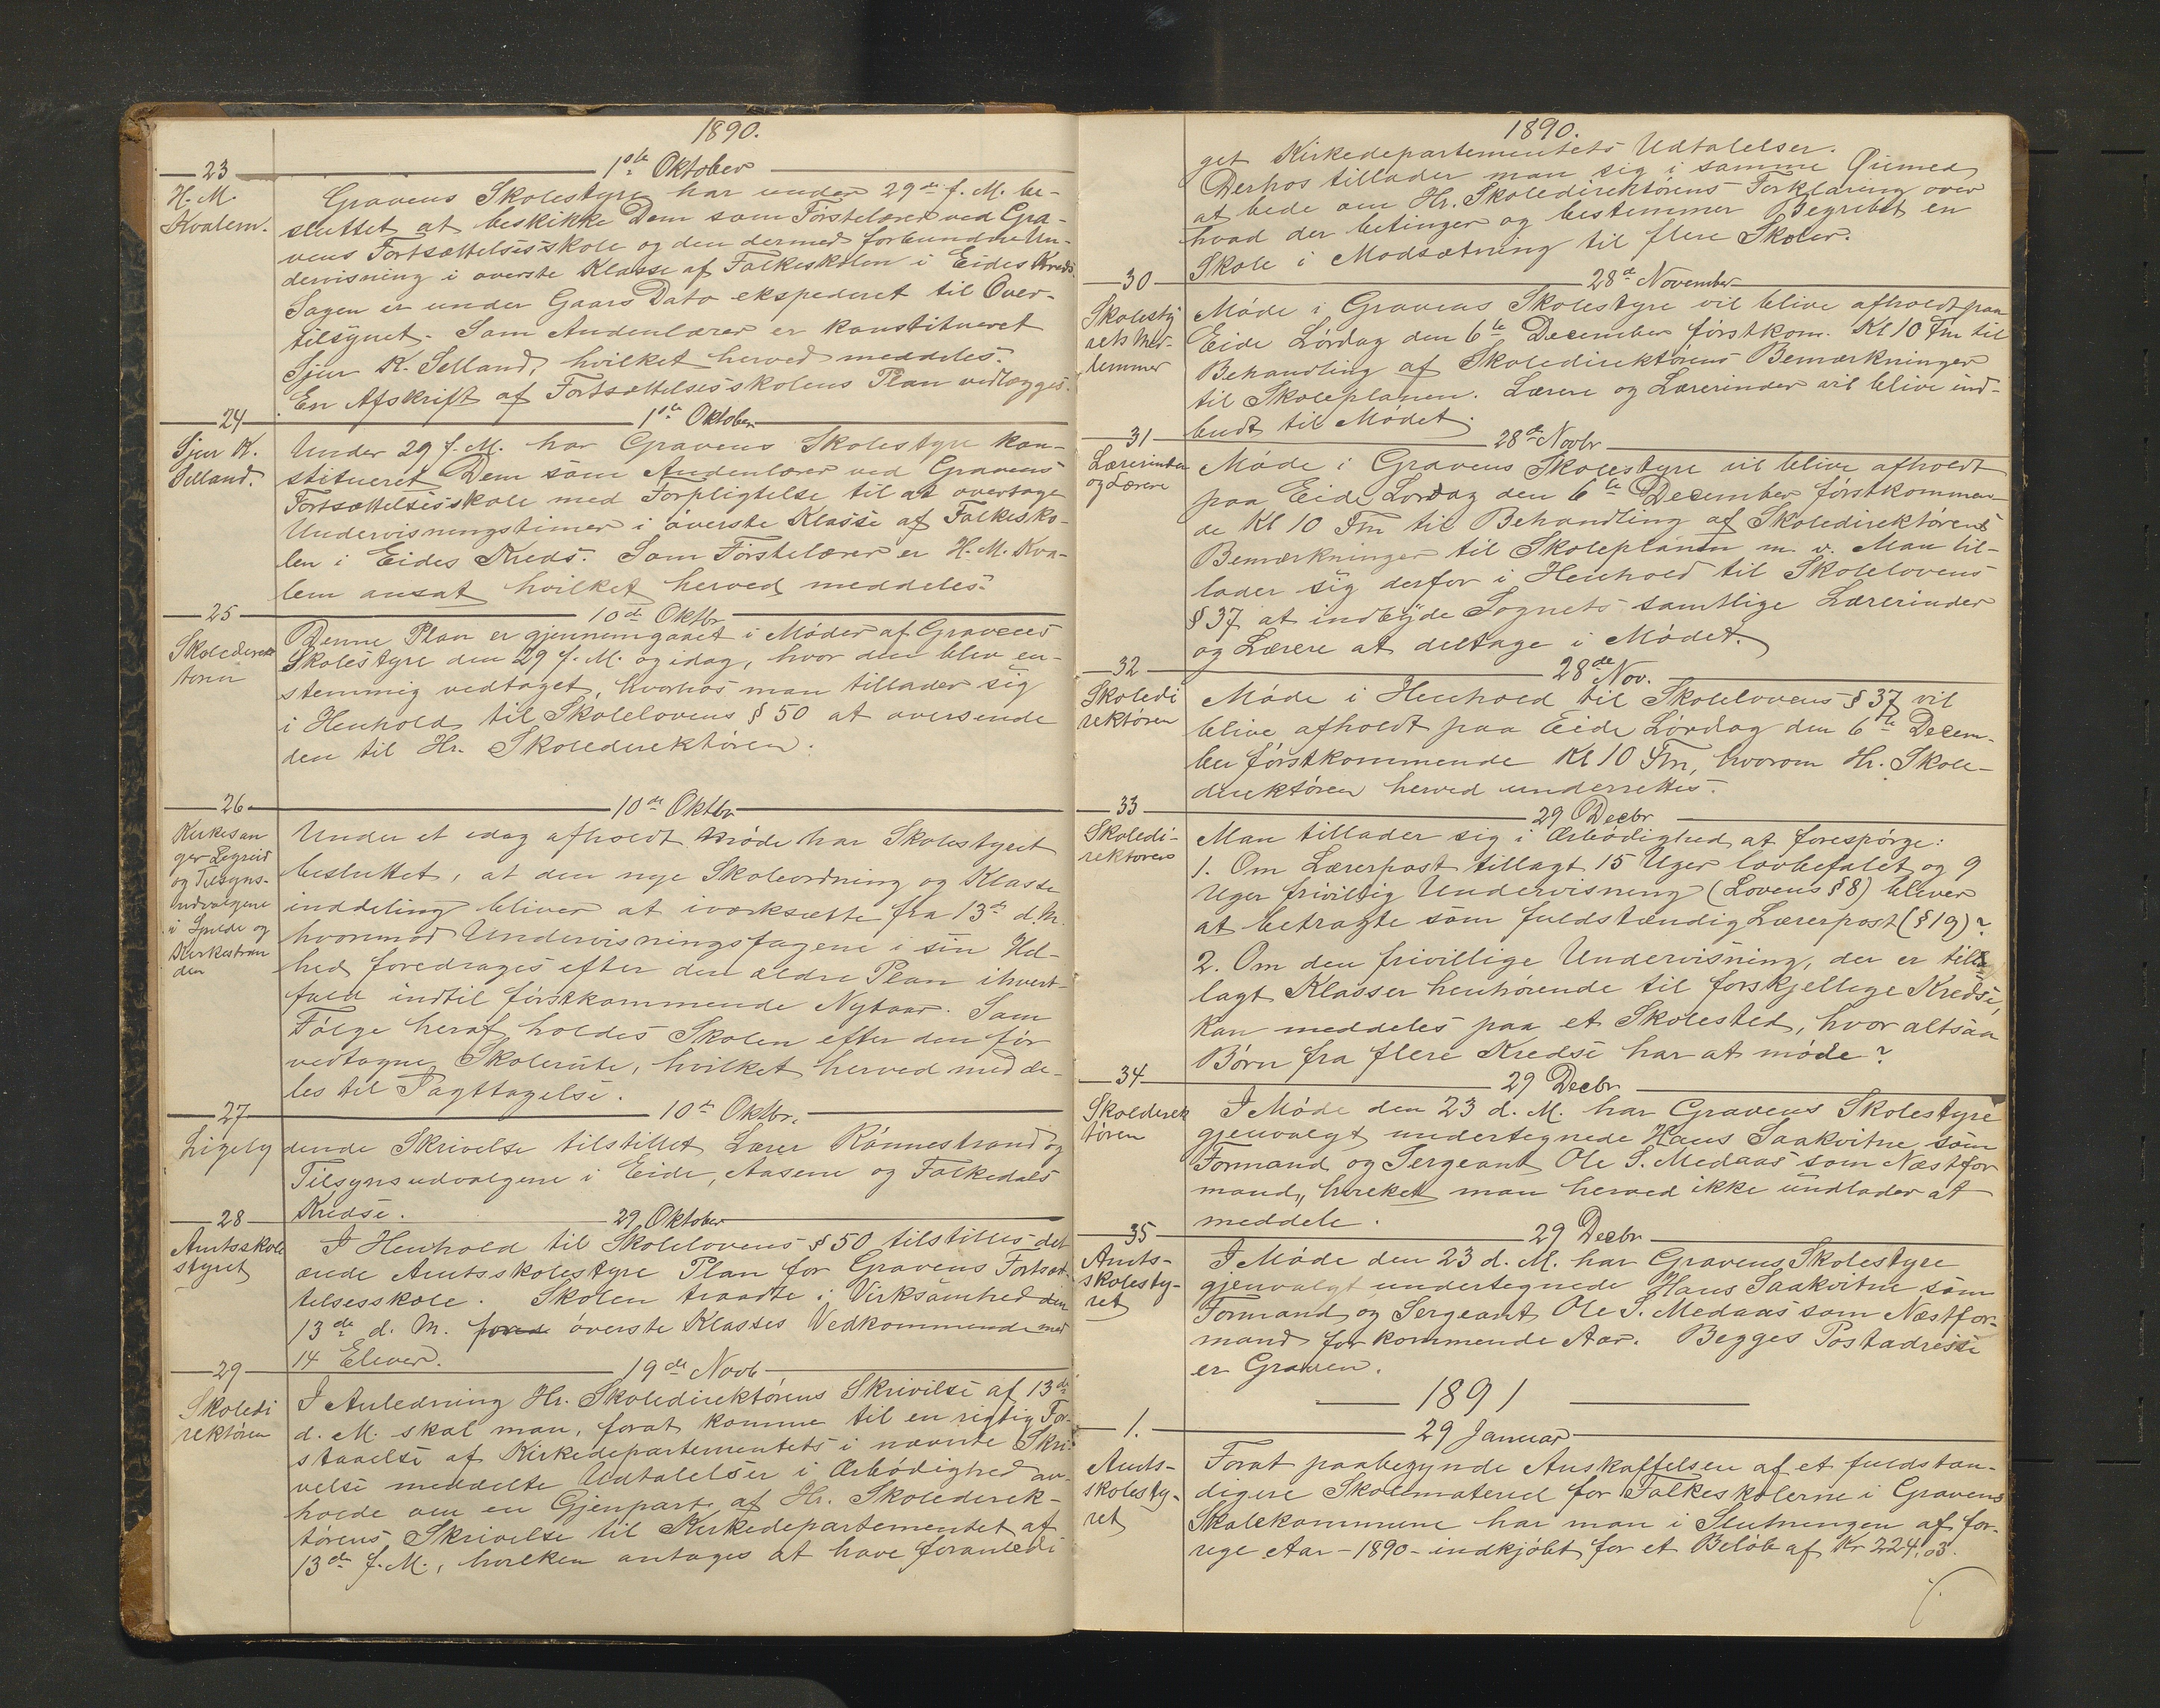 1890.
23 1ste Oktober
H. M. Kvalem.
Gravens Skolestyre har under 29de f. M. be-
sluttet at beskikke Dem som Førstelærer ved Gra-
vens Fortsættelsesskole og den dermed forbundne Un-
dervisning i øverste Klasse af Folkeskolen i Eides Kreds.
Sagen er under Gaars Dato ekspederet til Over-
tilsynet. Som Andenlærer er konstitueret
Sjur K. Selland, hvilket herved meddeles.
En Afskrift af Fortsættelsesskolens Plan vedlægges.
24 1ste Oktober
Sjur K. Selland.
Under 29 f. M. har Gravens Skolestyre kon-
stitueret Dem som Andenlærer ved Gravens
Fortsættelsesskole med Forpligtelse til at overtage
Undervisningstimer i øverste Klasse af Folkesko-
len i Eides Kreds. Som Førstelærer er H. M. Kva-
lem ansat hvilket herved meddeles.
25 10de Oktbr
Skoledirek
tøren
Denne Plan er gjennemgaaet i Møder af Gravens
Skolestyre den 29 f. M. og idag, hvor den blev en-
stemmig vedtaget, hvorhos man tillader sig
i Henhold til Skolelovens § 50 at oversende
den til Hr. Skoledirektøren.
26 10de Oktbr
Kirkesan
ger Legreid
og Tilsyns-
udvalgene
i Spilde og
Kirkestran
den
Under et idag afholdt Møde har Skolestyret
besluttet, at den nye Skoleordning og Klasse
inddeling bliver at iværksætte fra 13de d. M.
hvorimod Undervisningsfagene i sin Hel-
hed foredrages efter den ældre Plan ihvert-
fald indtil førstkommende Nytaar. Som
Følge heraf holdes Skolen efter den før
vedtagne Skolerute, hvilket herved medde-
les til Iagttagelse.
27 10de Oktbr.
Ligely dende Skrivelse tilstillet Lærer Rønnestrand og
Tilsynsudvalgene i Eide, Aasene og Folkedals
Kredse.
28 29 Oktober
Amtsskole
styret
I Henhold til Skolelovens § 50 tilstilles det
ærede Amtsskolestyre Plan for Gravens Fortsæt-
telsesskole. Skolen traadte i Virksomhed den
13de d. M. øverste Klasses Vedkommende med
14 Elever.
29 19de Novb
Skoledi
rektøren
I Anledning Hr. Skoledirektørens Skrivelse af 13de
d. M. skal man, forat komme til en rigtig For-
staaelse af Kirkedepartementets i nævnte Skri-
velse meddelte Udtalelser i Ærbødighed an-
holde om en Gjenpart af Hr. Skoledirek-
tørens Skrivelse til Kirkedepartementet af
13de f. M., hvilken antages at have foranledi
1890.
get Kirkedepartementets Udtalelser.
Derhos tillader man sig i samme Øiemed
at bede om Hr. Skoledirektørens Forklaring over
hvad der betinger og bestemmer Begrebet en
Skole i Modsætning til flere Skoler.
30 28de November
Skolesty
rets Med-
lemmer
Møde i Gravens Skolestyre vil blive afholdt paa
Eide Lørdag den 6te December førstkom. Kl 10 Fm til
Behandling af Skoledirektørens Bemærkninger
til Skoleplanen. Lærere og Lærerinder vil blive ind-
budt til Mødet.
31 28de Novbr
Lærerinder
og Lærere
Møde i Gravens Skolestyre vil blive afholdt
paa Eide Lørdag den 6te December førstkommen-
de Kl 10 Fm til Behandling af Skoledirektørens
Bemærkninger til Skoleplanen m. v. Man til-
lader sig derfor i Henhold til Skolelovens
§ 37 at indbyde Sognets samtlige Lærerinder
og Lærere at deltage i Mødet.
32 28de Nov.
Skoledi
rektøren
Møde i Henhold til Skolelovens § 37 vil
blive afholdt paa Eide Lørdag den 6te Decem-
ber førstkommende Kl 10 Fm, hvorom Hr. Skole-
direktøren herved underrettes.
33 29 Decbr
Skoledi-
rektøren
Man tillader sig i Ærbødighed at forespørge:
1. Om Lærerpost tillagt 15 Uger lovbefalet og 9
Uger frivillig Undervisning (Lovens § 8) bliver
at betragte som fuldstændig Lærerpost (§ 19)?
2. Om den frivillige Undervisning, der er till
lagt Klasser henhørende til forskjellige Kredse,
kan meddeles paa et Skolested, hvor altsaa
Børn fra flere Kredse har at møde?
34 29 Decbr
Skoledirek
tøren
I Møde den 23 d. M. har Gravens Skolestyre
gjenvalgt undertegnede Hans Saakvitne som
Formand og Sergeant Ole S. Medaas som Næstfor
mand, hvilket man herved ikke undlader at
meddele.
35 29 Decbr
Amts-
skolesty-
ret
I Møde den 23 d. M. har Gravens Skolestyre
gjenvalgt undertegnede Hans Saakvitne som
Formand og Sergeant Ole S. Medaas som Næstfor-
mand for kommende Aar. Begges Postadresse
er Graven.
1891
1. 29 Januar
Amts-
skolesty-
ret
Forat paabegynde Anskaffelsen af et fuldstæn-
digere Skolemateriel for Folkeskolerne i Gravens
Skolekommune har man i Slutningen af for-
rige Aar - 1890 - indkjøbt for et Beløb af Kr 224,03.